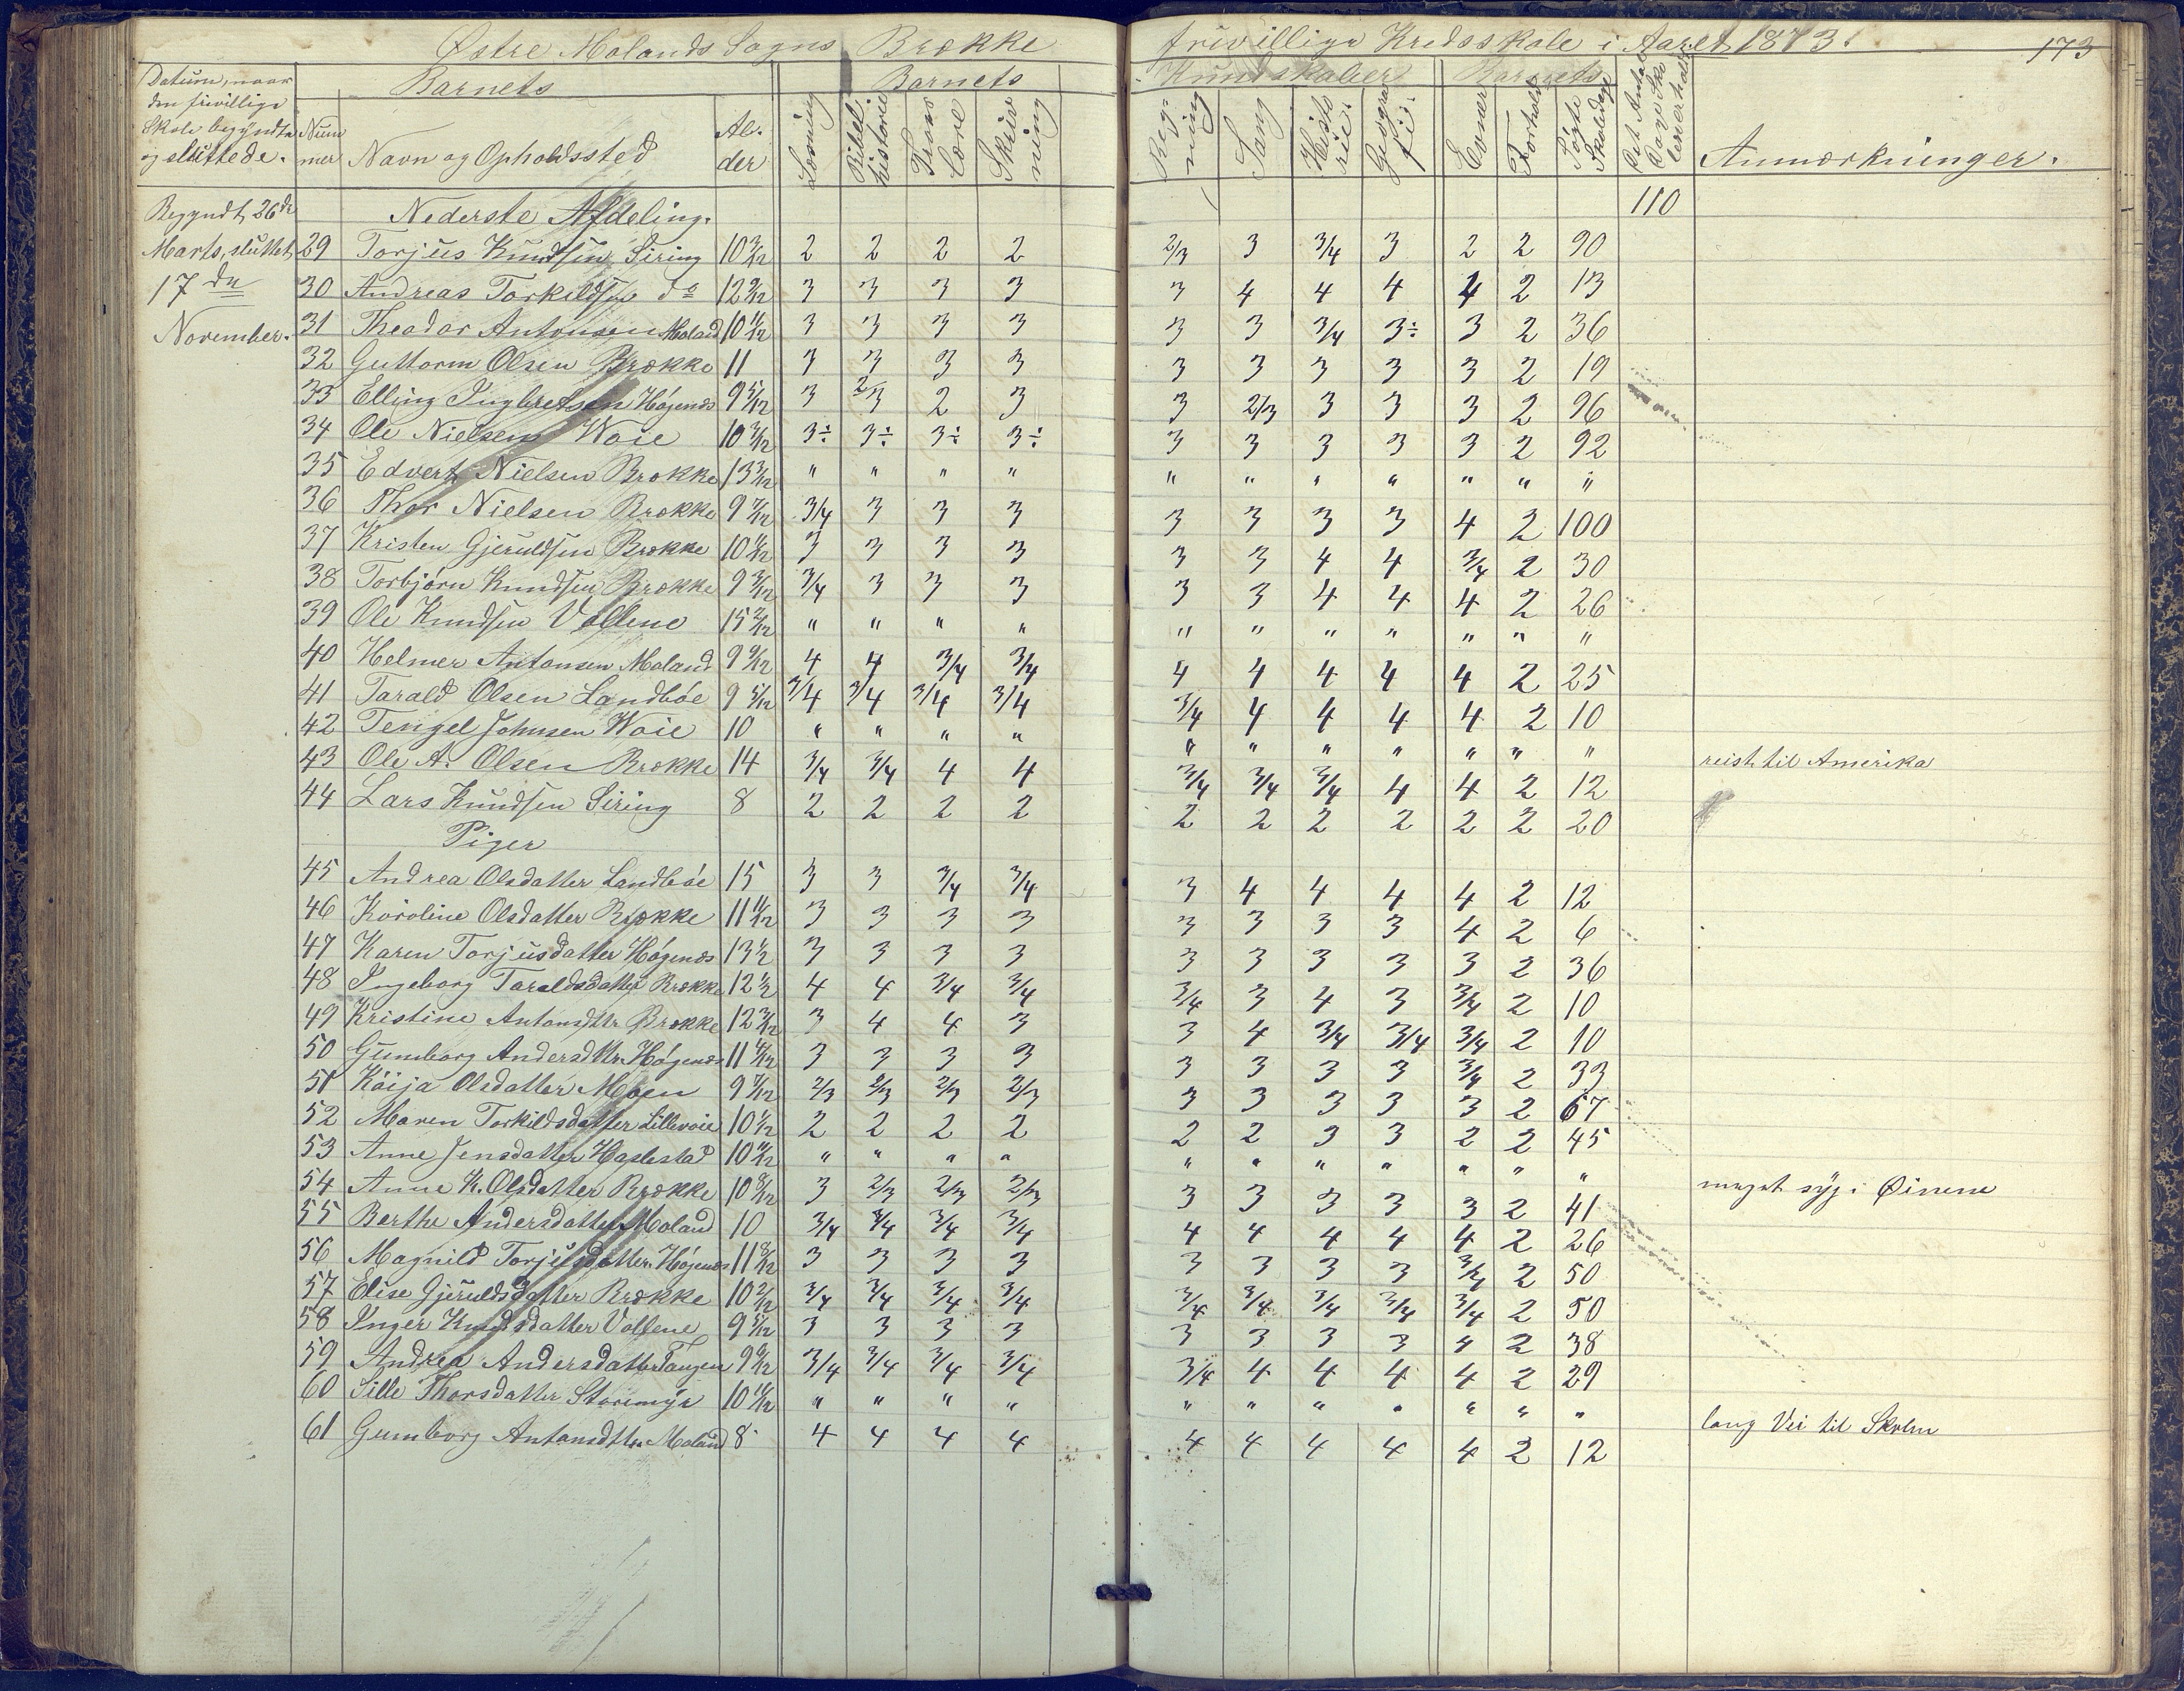 Østre Molands Sogns Brække frivillige Kredsskole i Aaret 1873. 173
Datum, naar den frivillige Skole begyndte og sluttede. Barnets Barnets Kundskaber Barnets
Nummer Navn og Opholdssted Alder Læsning Bibelhistorie Troes Lære Skrivning Regning Sang Historie Geografi Evner Forhold Søgte Skoledage Det Antal Dage Skolen er holdt Anmærkninger.
Begyndt 26de Nederste Afdeling. 110
Marts, sluttet 29 Torjus Knudsen Siring 10 3/12 2 2 2 2 2/3 3 3/4 3 2 2 90
17de 30 Andreas Torkildsen do 12 9/12 3 3 3 3 3 4 4 4 4 2 13
November. 31 Theodor Antonsen Moland 10 11/12 3 3 3 3 3 3 3/4 3÷ 3 2 36
32 Guttorm Olsen Brække 11 3 3 3 3 3 3 3 3 3 2 19
33 Elling Ingbretsen Høgenæs 9 5/12 3 2/3 2 3 3 2/3 3 3 3 2 96
34 Ole Nielsen Woie 10 3/12 3÷ 3÷ 3÷ 3÷ 3 3 3 3 3 2 92
35 Edvert Nielsen Brække 13 3/12 " " " " " " " " " " "
36 Thor Nielsen Brække 9 7/12 3/4 3 3 3 3 3 3 3 4 2 100
37 Kristen Gjeruldsen Brække 10 6/12 3 3 3 3 3 3 4 4 3/4 2 30
38 Torbjørn Knudsen Brække 9 3/12 3/4 3 3 3 3 3 4 4 4 2 26
39 Ole Knudsen Vollene 15 2/12 " " " " " " " " " " "
40 Helmer Antonsen Moland 9 9/12 4 4 3/4 3/4 4 4 4 4 4 2 25
41 Tarald Olsen Landbøe 9 5/12 3/4 3/4 3/4 3/4 3/4 4 4 4 4 2 10
42 Tengel Johnsen Woie 10 " " " " " " " " " " " reist til Amerika
43 Ole A. Olsen Brække 14 3/4 3/4 4 4 3/4 3/4 3/4 4 4 2 12
44 Lars Knudsen Siring 8 2 2 2 2 2 2 2 2 2 2 20
Piger
45 Andrea Olsdatter Landbøe 15 3 3 3/4 3/4 3 4 4 4 4 2 12
46 Karoline Olsdatter Brække 11 11/12 3 3 3 3 3 3 3 3 4 2 6
47 Karen Torjusdatter Høgenæs 13 1/2 3 3 3 3 3 3 3 3 3 2 36
48 Ingeborg Taraldsdatter Brække 12 1/2 4 4 3/4 3/4 3/4 3 4 3 3/4 2 10
49 Kristine Antonsdtr Brække 12 3/12 3 4 4 3 3 4 3/4 3/4 3/4 2 10
50 Gunborg Andersdtr. Høgenæs 11 4/12 3 3 3 3 3 3 3 3 3/4 2 33
51 Kaija Olsdatter Moen 9 7/12 2/3 2/3 2/3 2/3 3 3 3 3 3 2 67
52 Maren Torkildsdatter Lillevoie 10 1/12 2 2 2 2 2 2 3 3 2 2 45
53 Anne Jensdatter Haslestad 10 11/12 " " " " " " " " " " " meget syg i Øinene
54 Anne K. Olsdatter Brække 10 8/12 3 2/3 2/3 2/3 3 3 3 3 3 2 41
55 Berthe Andersdatter Moland 10 3/4 3/4 3/4 3/4 4 4 4 4 4 2 26
56 Magnild Torjusdatter. Høgenæs 11 8/12 3 3 3 3 3 3 3 3 3/4 2 50
57 Elise Gjeruldsdatter Brække 10 2/12 3/4 3/4 3/4 3/4 3/4 3/4 3/4 3/4 3/4 2 50
58 Inger Knudsdatter Vollene 9 5/12 3 3 3 3 3 3 3 3 4 2 38
59 Andrea Andersdatter Tangen 9 9/12 3/4 3/4 3/4 3/4 3/4 4 4 4 4 2 29
60 Sille Thorsdatter Storemyr 10 10/12 " " " " " " " " " " " lang Vei til Skolen
61 Gunborg Antonsdtr. Moland 8 4 4 4 4 4 4 4 4 4 2 12